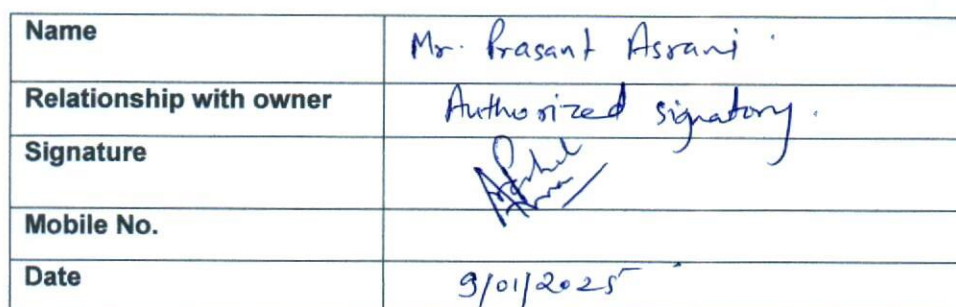 Name Mr. Prasant Asrani.
Relationship with owner Authorized signatory.
Signature
Mobile No.
Date 9/01/2025